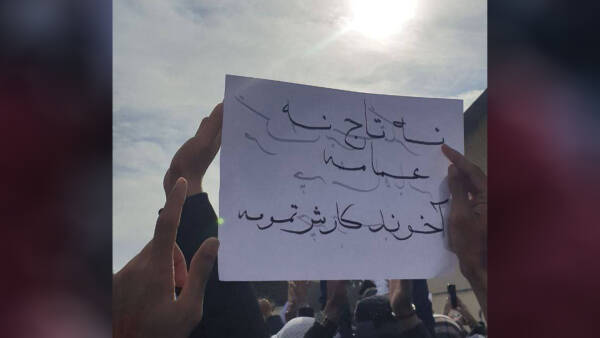 نه تاج نه
عمامه
آخوند کارش تمومه